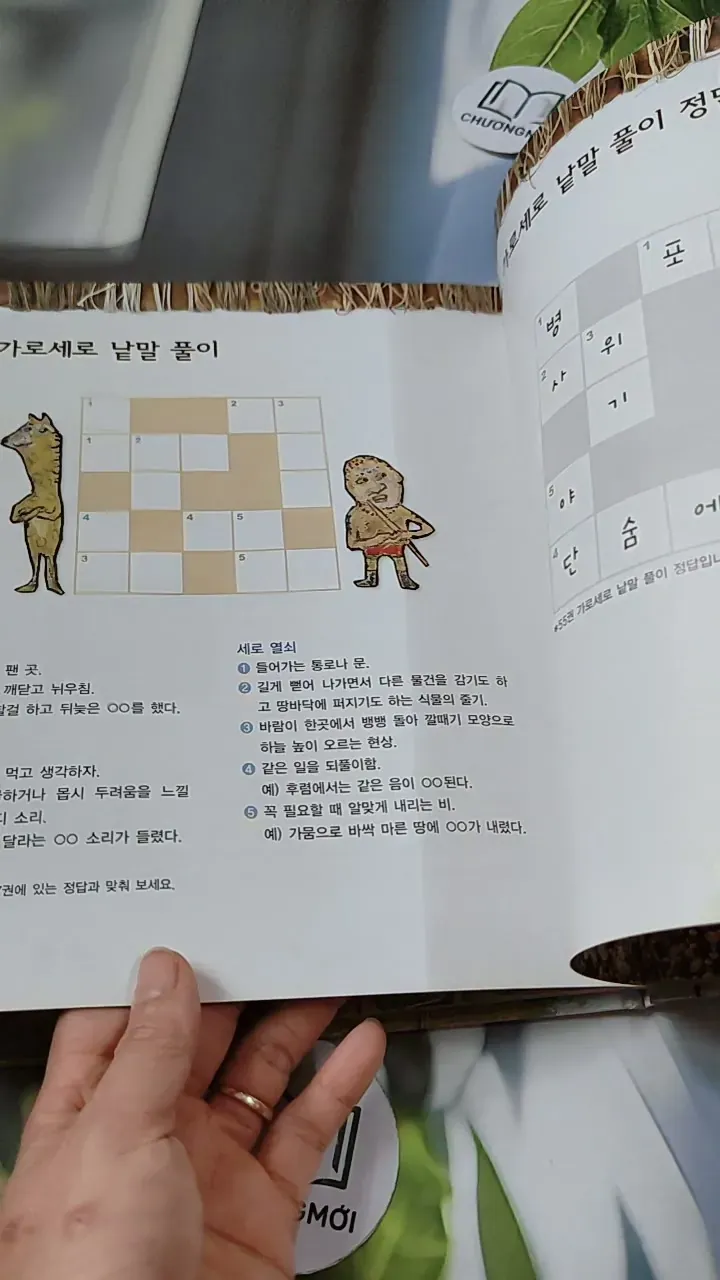 CHƯƠNG
가로세로 낱말 풀이
1 2 3
1 2
4 4 5
3 5
팬 곳.
깨닫고 뉘우침.
할걸 하고 뒤늦은 ○○를 했다.
먹고 생각하자.
하거나 몹시 두려움을 느낄
소리.
달라는 ○○ 소리가 들렸다.
권에 있는 정답과 맞춰 보세요.
세로 열쇠
1 들어가는 통로나 문.
2 길게 뻗어 나가면서 다른 물건을 감기도 하
고 땅바닥에 퍼지기도 하는 식물의 줄기.
3 바람이 한곳에서 뱅뱅 돌아 깔때기 모양으로
하늘 높이 오르는 현상.
4 같은 일을 되풀이함.
예) 후렴에서는 같은 음이 ○○된다.
5 꼭 필요할 때 알맞게 내리는 비.
예) 가뭄으로 바싹 마른 땅에 ○○가 내렸다.
가로세로 낱말 풀이 정답
1 포
1 병
2 사 3 위
기
5 야
4 단 숨 에
*55권 가로세로 낱말 풀이 정답입니
GMỚI